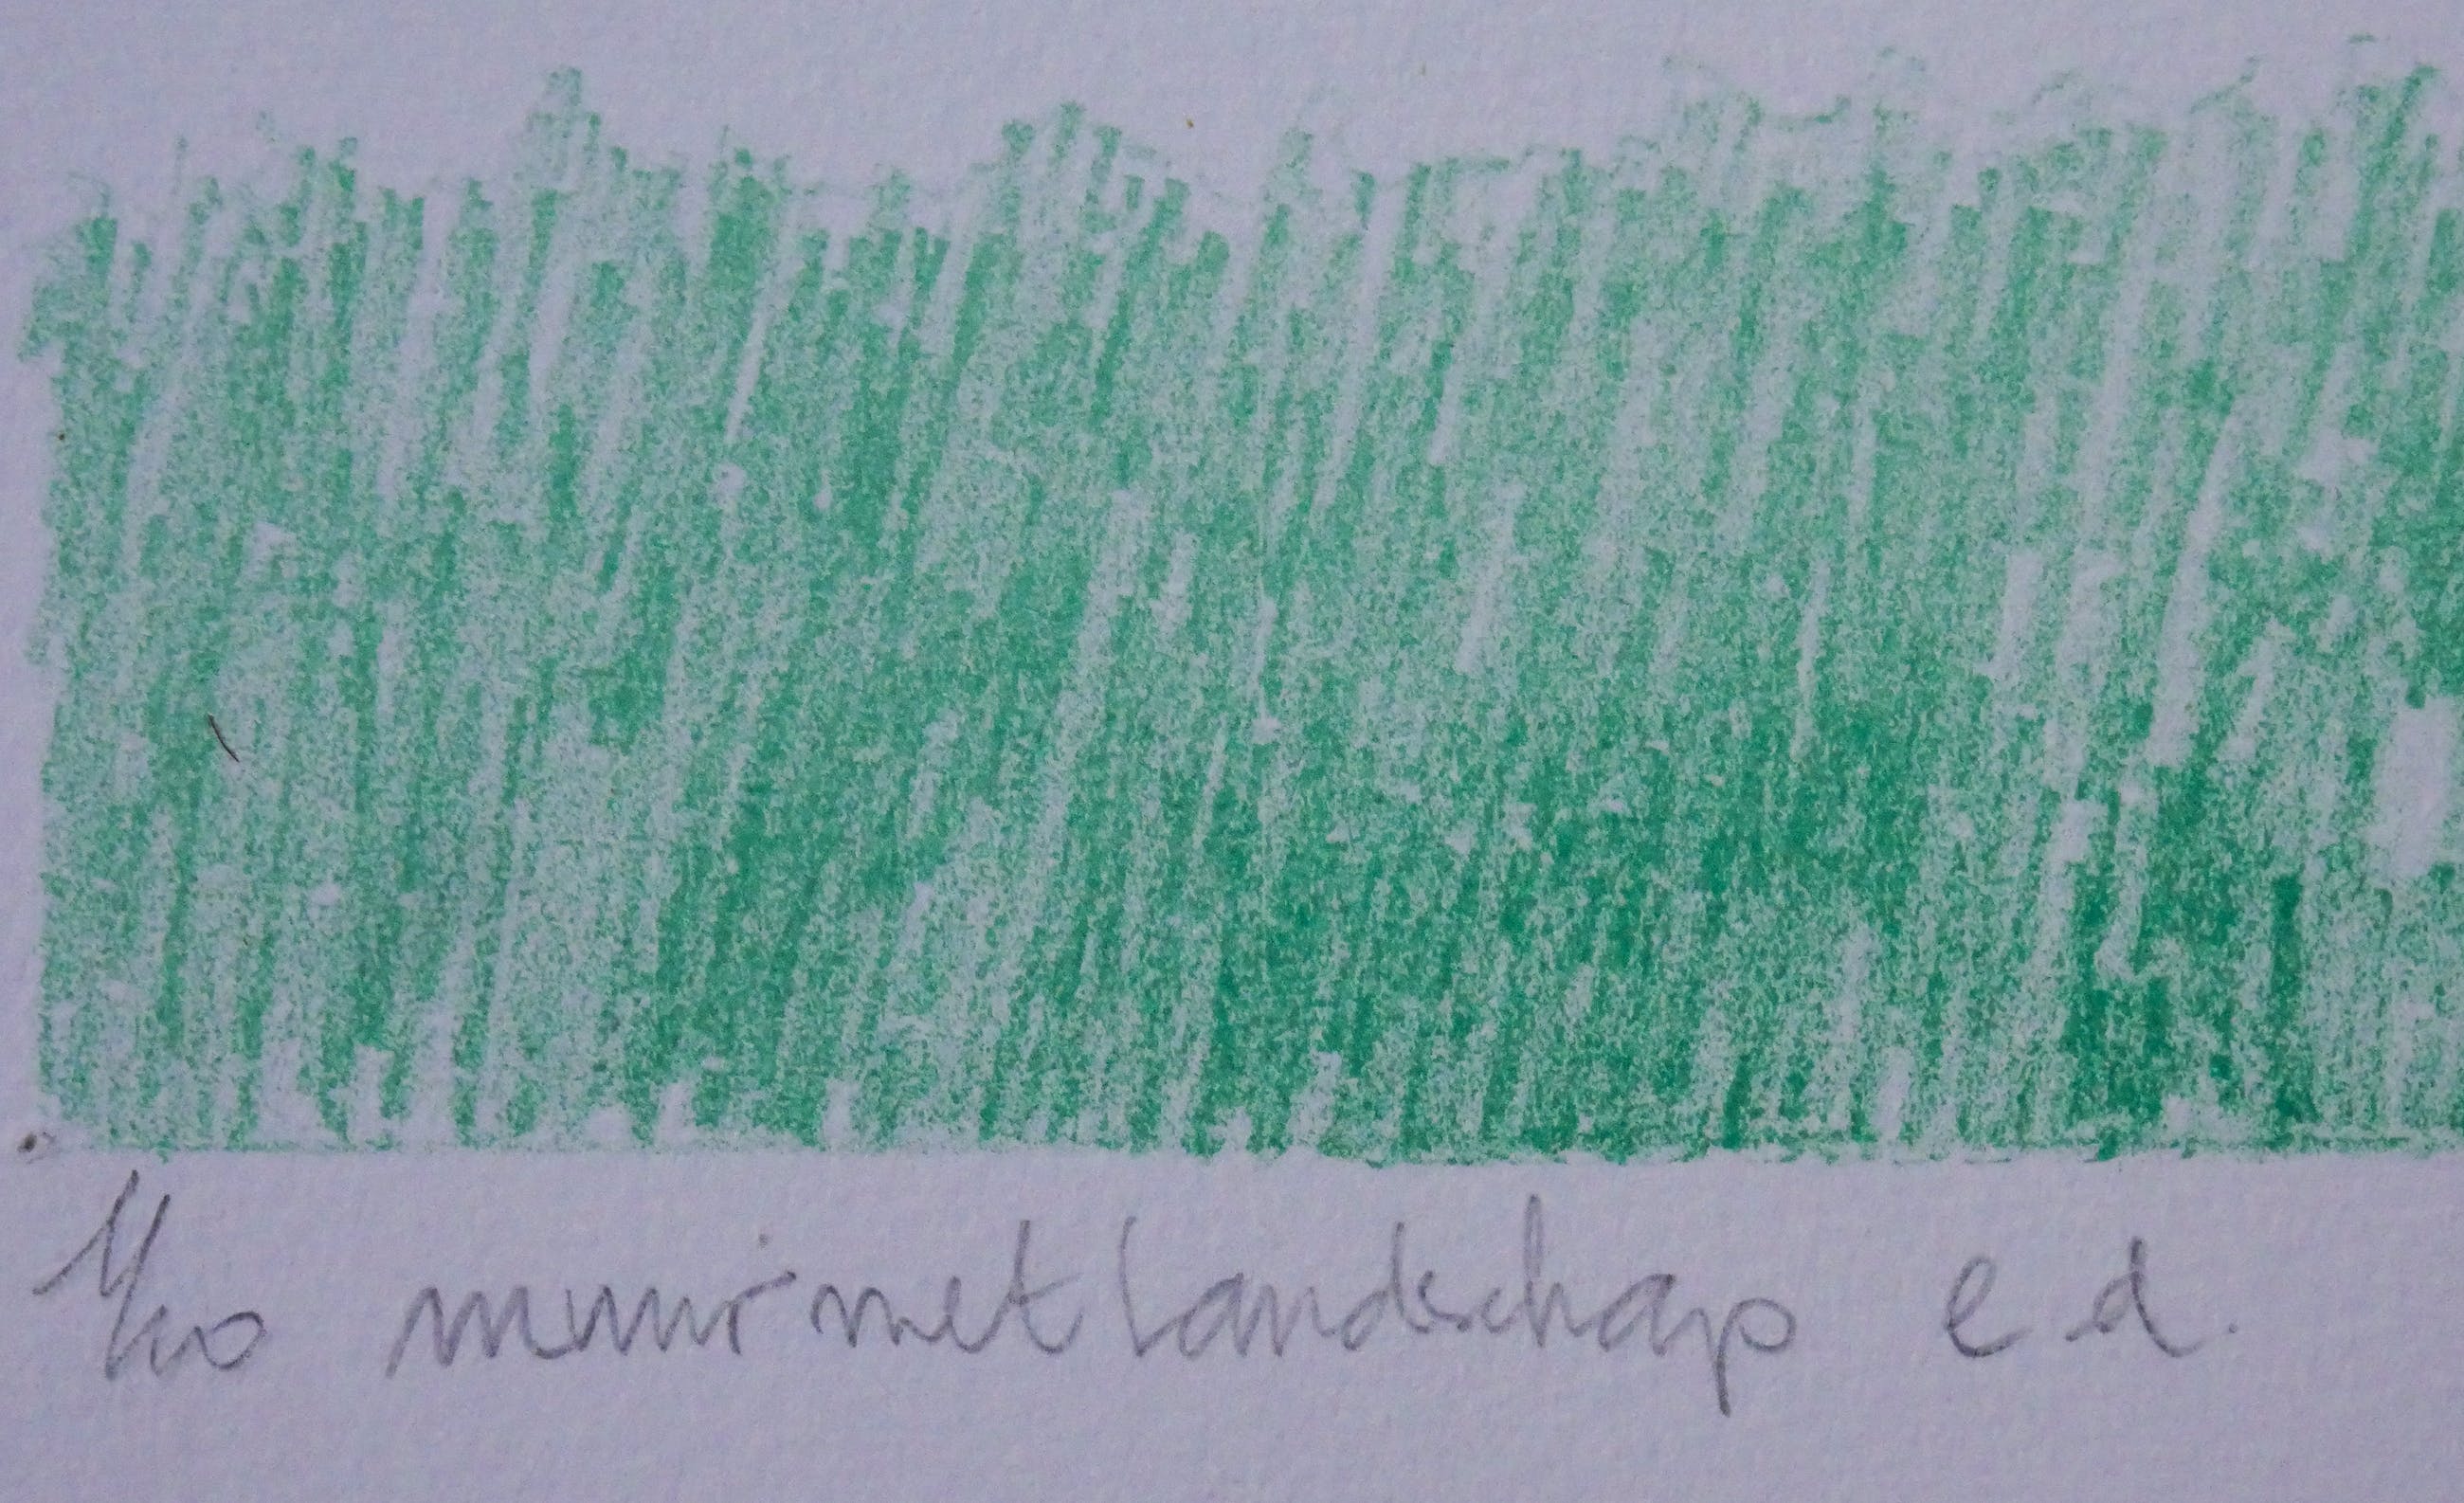 1/100 muur met landschap e.d.